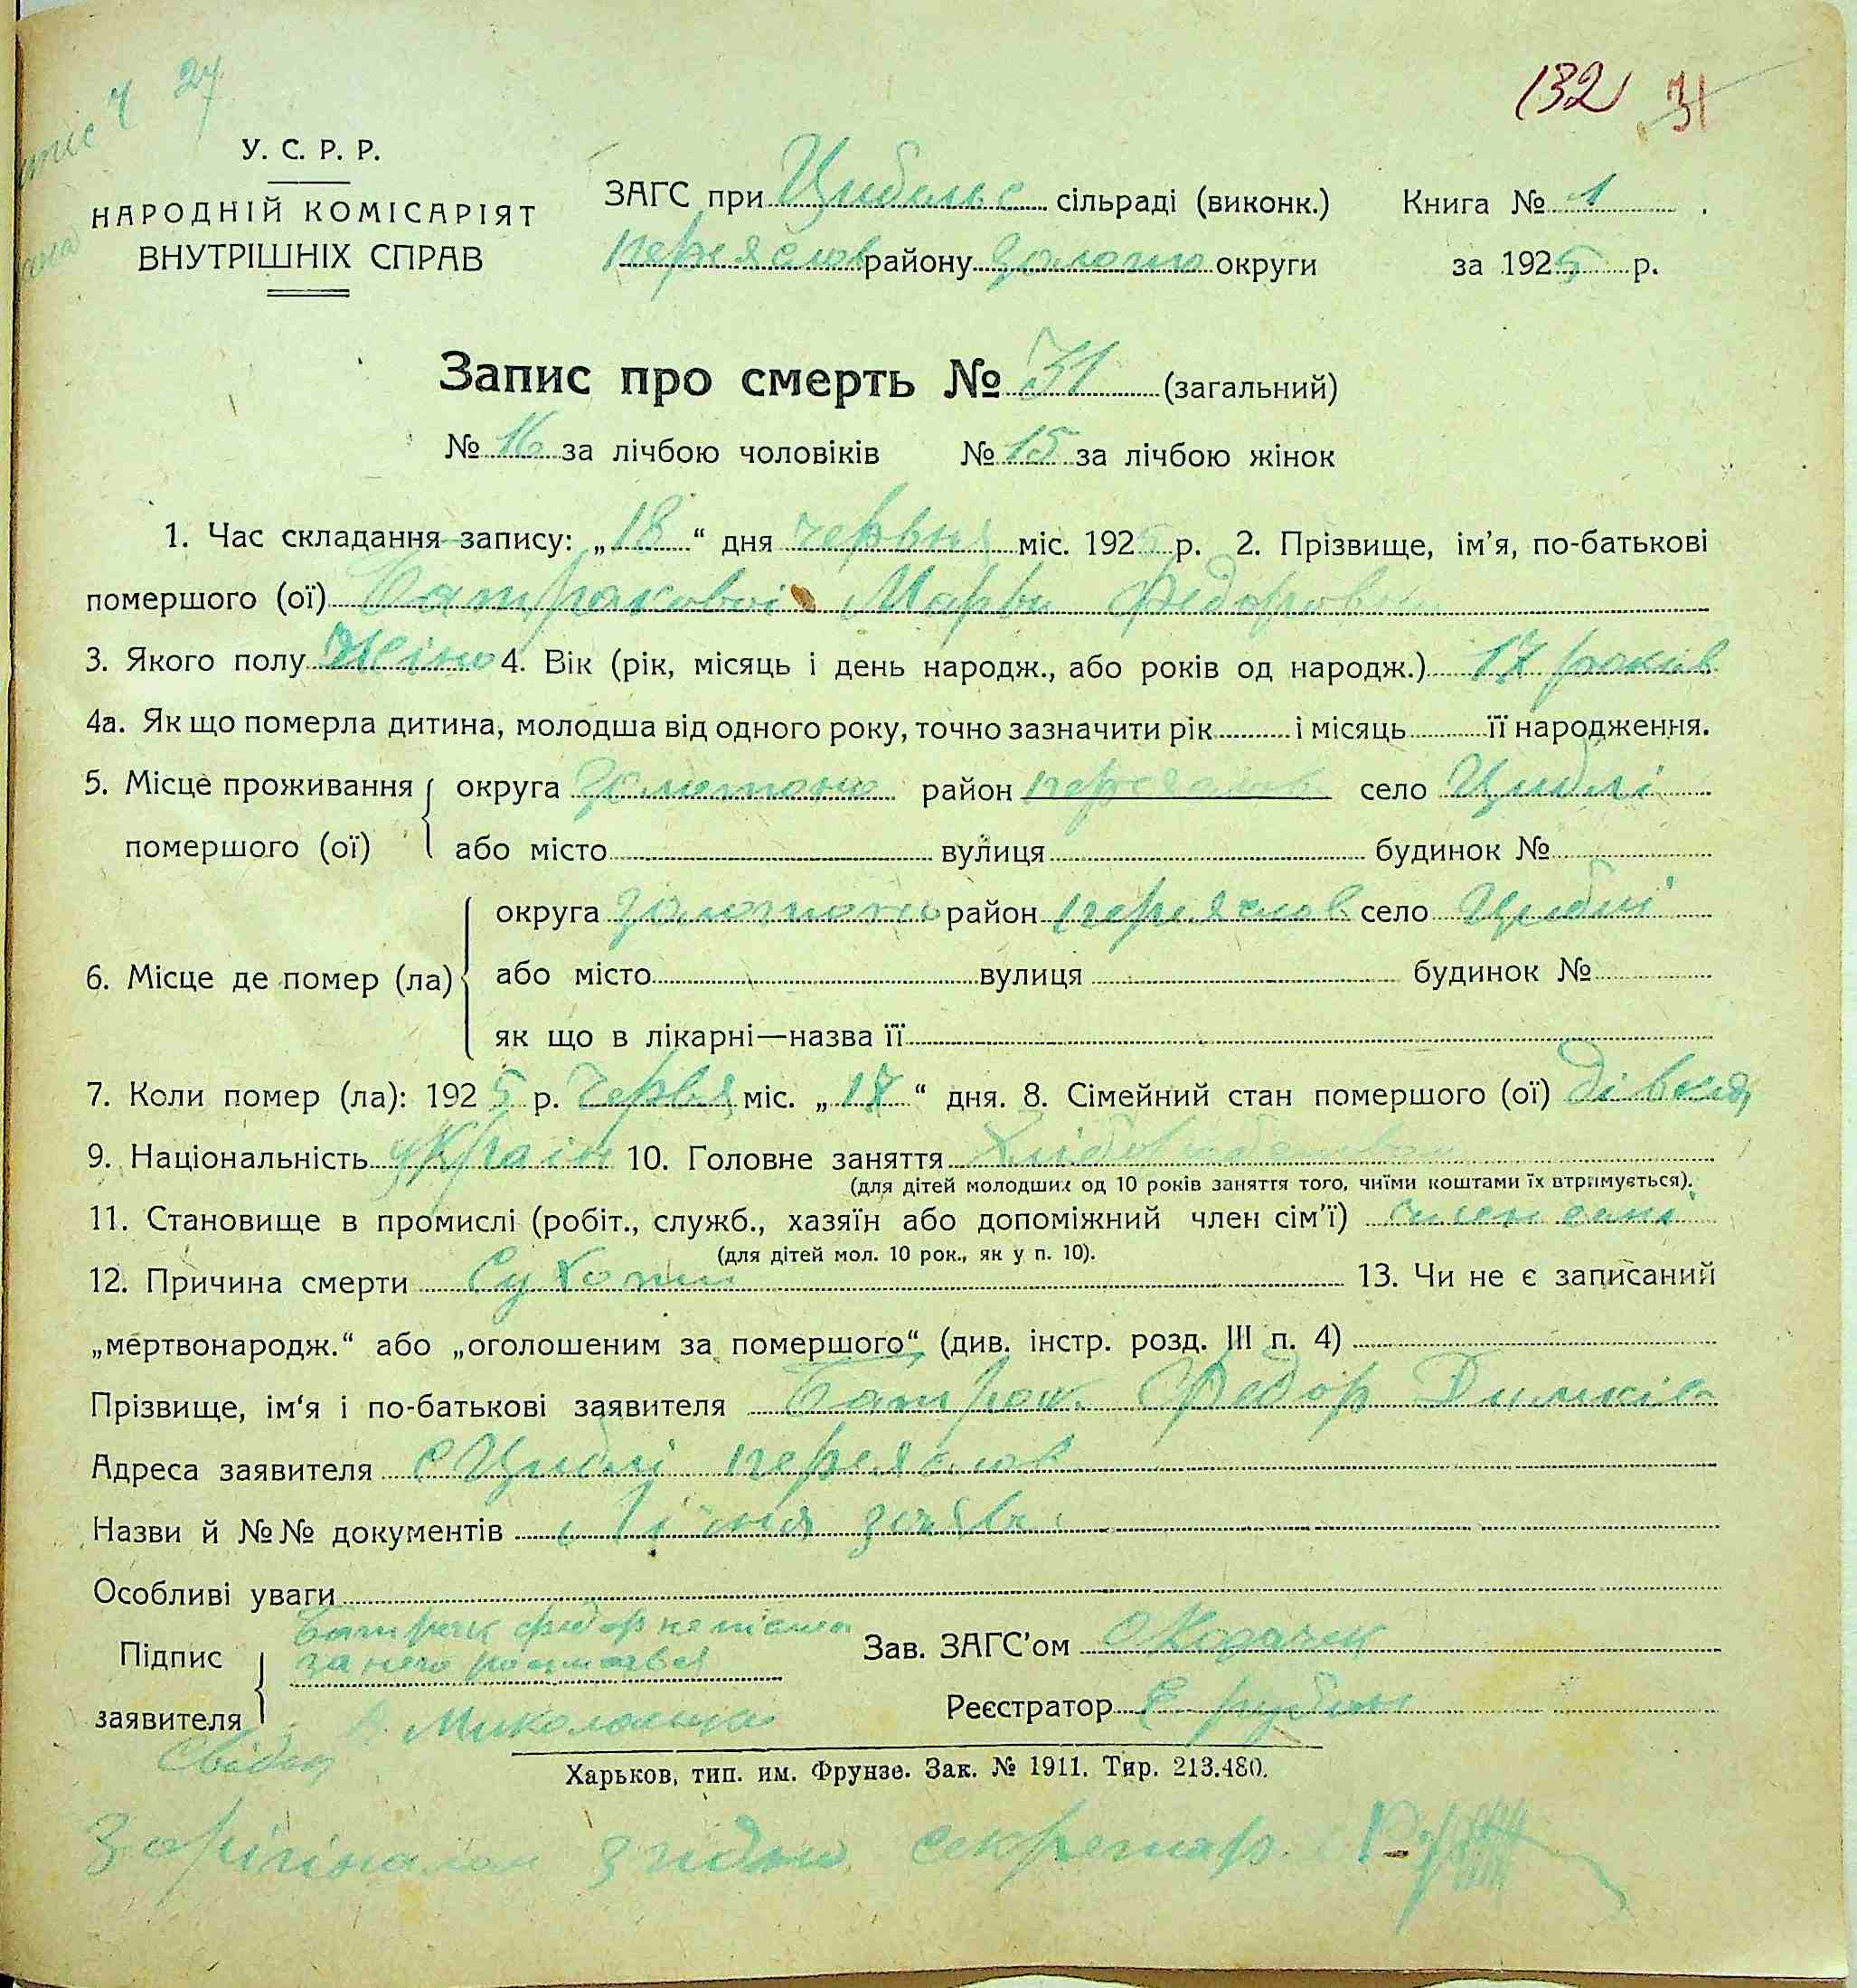 27
132 31
У. С. Р. Р.
НАРОДНІЙ КОМІСАРІЯТ
ВНУТРІШНІХ СПРАВ
ЗАГС при Цибельс сільраді (виконк.) Книга № 1
переяслов району Золотон округи за 1925 р.
Запис про смерть № 31 (загальний)
№ 16 за лічбою чоловіків № 15 за лічбою жінок
1. Час складання запису: „18“ дня червня міс. 1925 р. 2. Прізвище, ім'я, по-батькові
помершого (ої) Батракової Марви Федоровни
3. Якого полу Жіно 4. Вік (рік, місяць і день народж., або років од народж.) 17 років
4а. Як що померла дитина, молодша від одного року, точно зазначити рік і місяць її народження.
5. Місце проживання помершого (ої) округа Золотоно район переяслов село Циблі
або місто вулиця будинок №
6. Місце де помер (ла) округа Золотоно район переяслов село Циблі
або місто вулиця будинок №
як що в лікарні—назва її
7. Коли помер (ла): 1925 р. Червня міс. „17“ дня. 8. Сімейний стан помершого (ої) дівка
9. Національність україн 10. Головне заняття Хлібороб
(для дітей молодших од 10 років заняття того, чиїми коштами їх втримується).
11. Становище в промислі (робіт., служб., хазяїн або допоміжний член сім'ї) член семі
(для дітей мол. 10 рок., як у п. 10).
12. Причина смерти Сухоти 13. Чи не є записаний
„мертвонародж.“ або „оголошеним за помершого“ (див. інстр. розд. III п. 4)
Прізвище, ім'я і по-батькові заявителя Батрак Федор
Адреса заявителя с Циблі переяслов
Назви й №№ документів заява
Особливі уваги
Підпис заявителя Батрак федор неписьм
за него росписався
Миколаєнко
Свідки
Зав. ЗАГС'ом
Реєстратор
Харьков, тип. им. Фрунзе. Зак. № 1911. Тир. 213.480.
З орігіналом згідно секретар